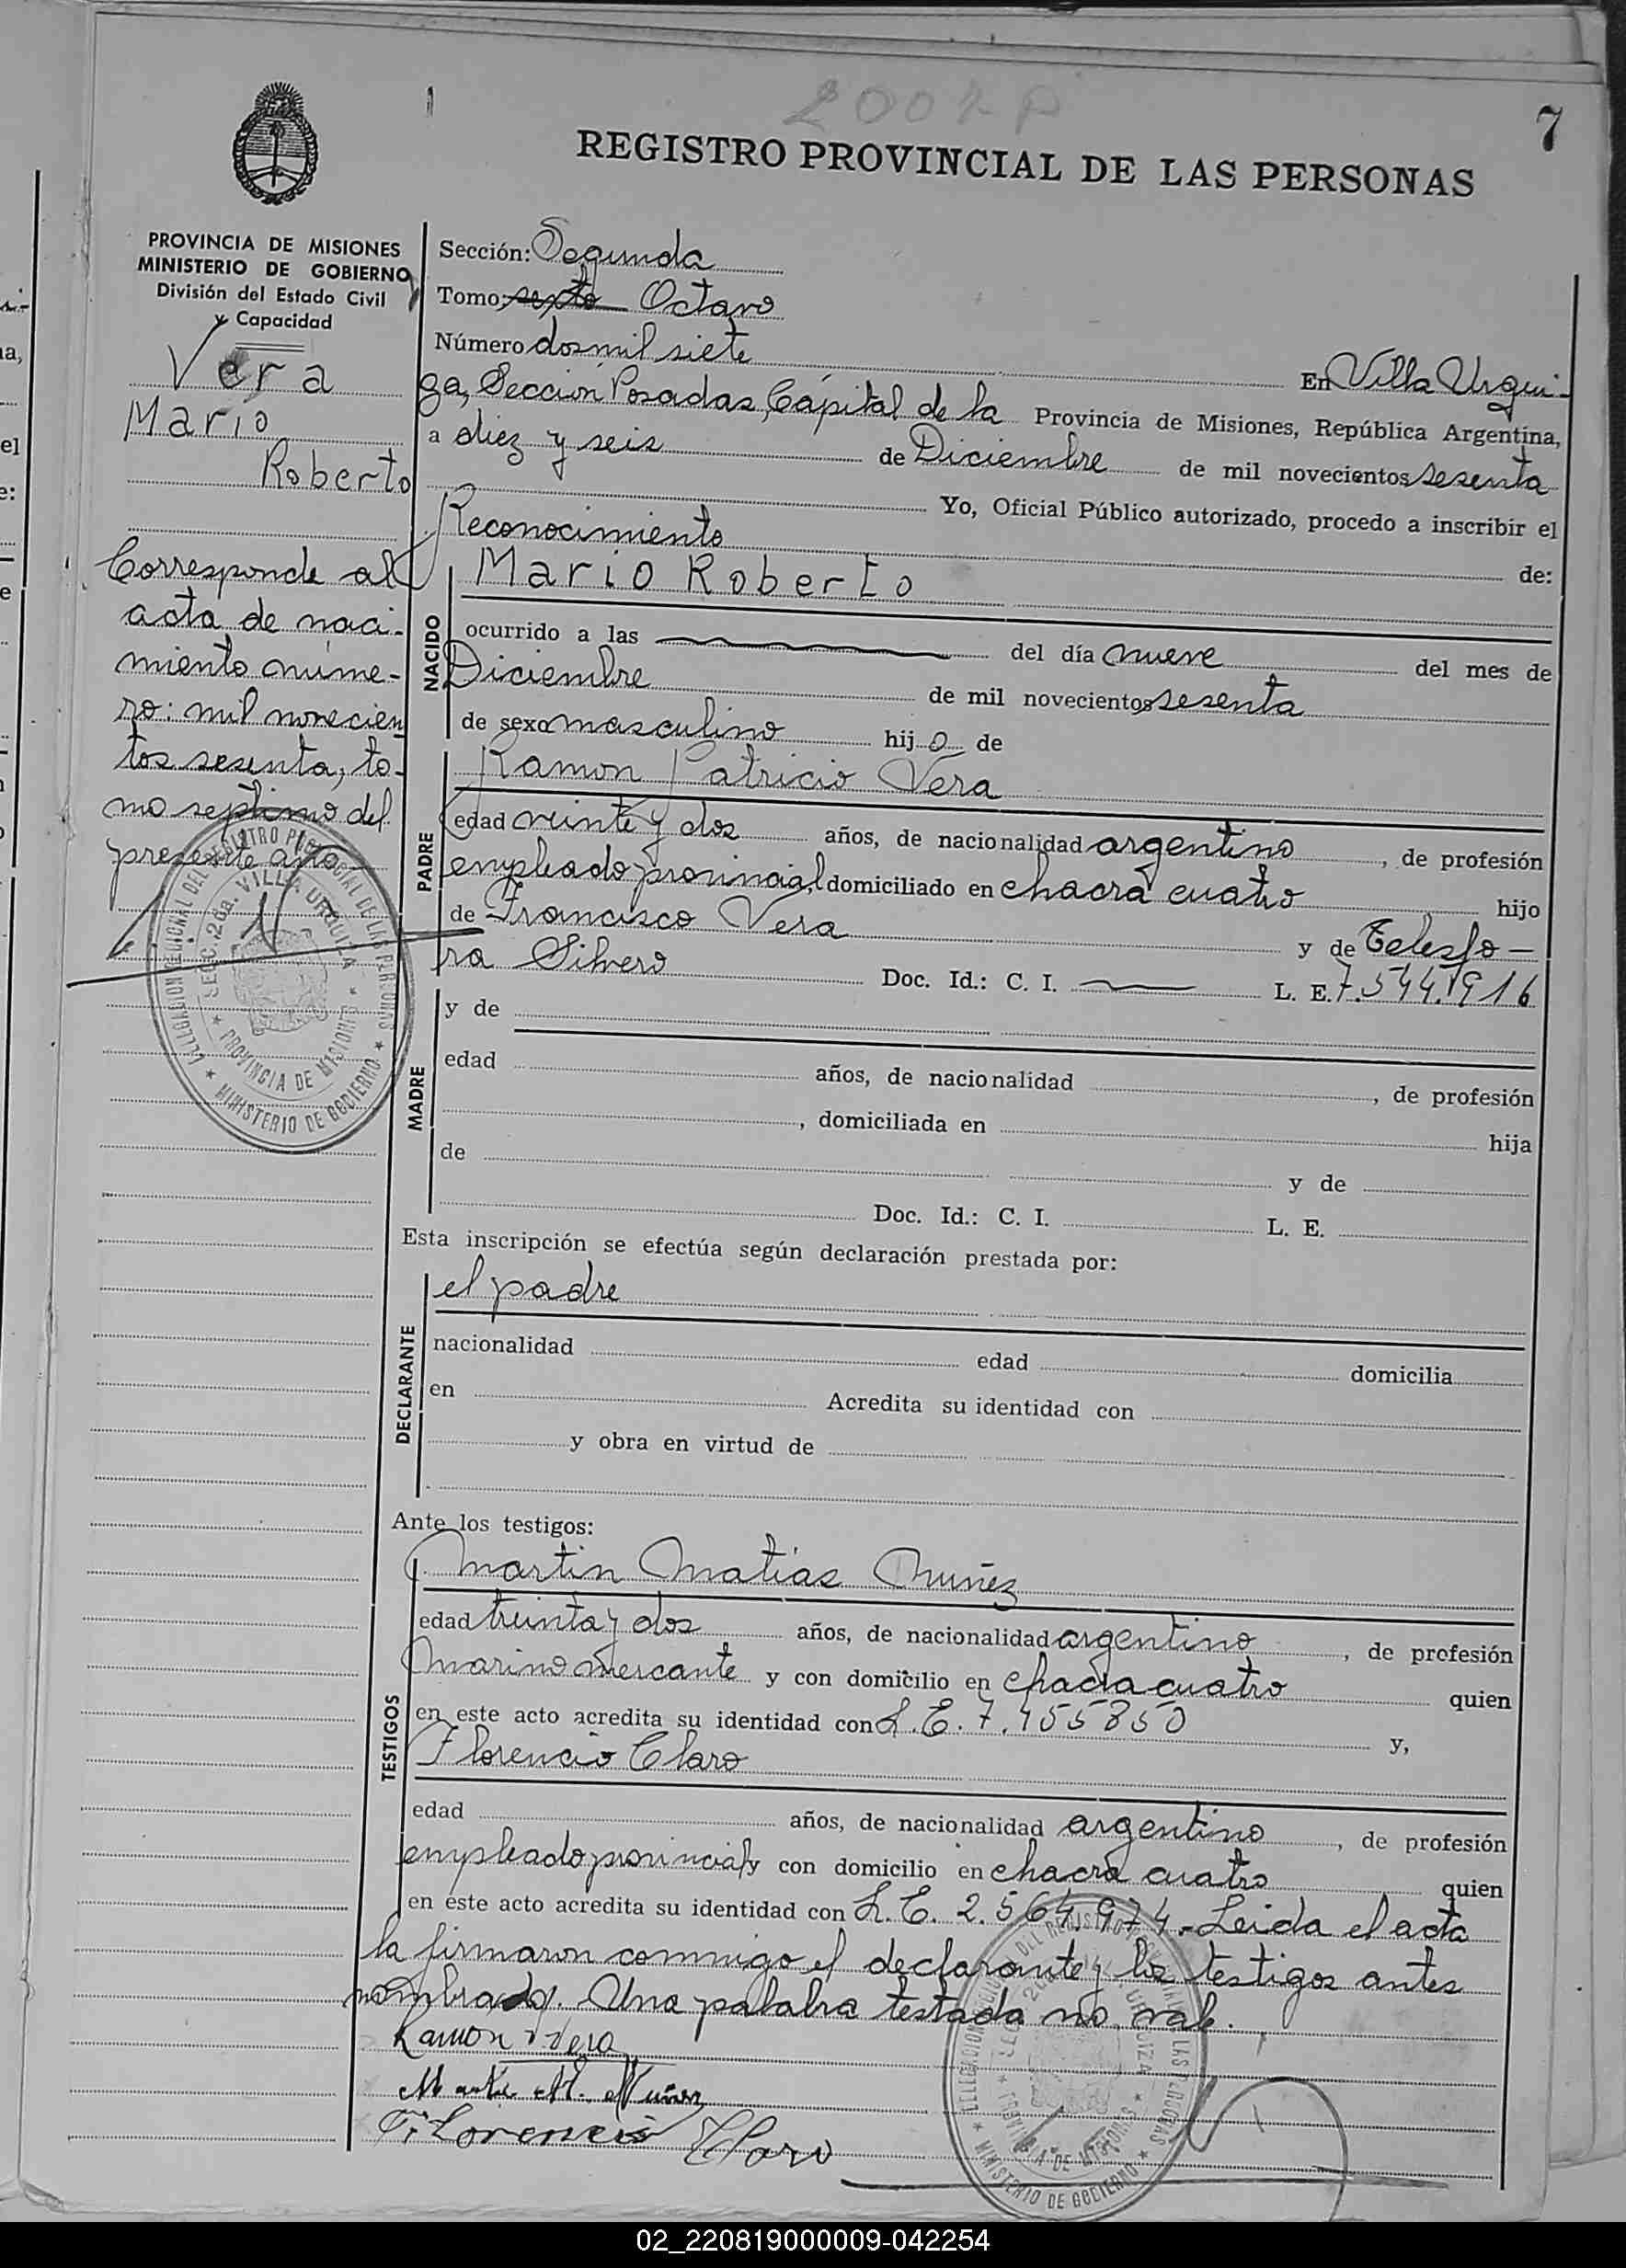 2007 P
7
REGISTRO PROVINCIAL DE LAS PERSONAS
PROVINCIA DE MISIONES
MINISTERIO DE GOBIERNO
División del Estado Civil
y Capacidad
Vera
Mario
Roberto
Corresponde al
acta de naci-
miento núme-
ro: mil novecien
tos sesenta, to-
mo septimo del
presente año
Sección: Segunda
Tomo: sexto Octavo
Número dosmil siete En Villa Urqui-
za, Sección Posadas, Cápital de la Provincia de Misiones, República Argentina,
a diez y seis de Diciembre de mil novecientos sesenta
Yo, Oficial Público autorizado, procedo a inscribir el
Reconocimiento de:
NACIDO
Mario Roberto
ocurrido a las del día nueve del mes de
Diciembre de mil novecientos sesenta
de sexo masculino hijo de
PADRE
Ramon Patricio Vera
edad veinte y dos años, de nacionalidad argentino, de profesión
empleado provincial, domiciliado en chacra cuatro hijo
de Francisco Vera y de Telesfo-
ra Silvero Doc. Id.: C. I. L. E. 7.544.916
MADRE
y de
edad años, de nacionalidad , de profesión
, domiciliada en hija
de y de
Doc. Id.: C. I. L. E.
Esta inscripción se efectúa según declaración prestada por:
DECLARANTE
el padre
nacionalidad edad domicilia
en Acredita su identidad con
y obra en virtud de
Ante los testigos:
TESTIGOS
Martin Matías Nuñez
edad treinta y dos años, de nacionalidad argentino, de profesión
Marino mercante y con domicilio en chacra cuatro quien
en este acto acredita su identidad con L.E. 7.455850 y,
Florencio Claro
edad años, de nacionalidad argentino, de profesión
empleado provincial y con domicilio en chacra cuatro quien
en este acto acredita su identidad con L.E. 2.564.974.- Leida el acta
la firmaron conmigo el declarante y los testigos antes
nombrados. Una palabra testada no vale.
Ramon Vera
Martin M. Nuñez
Florencio Claro
DELEGACION REGIONAL DEL REGISTRO PROVINCIAL DE LAS PERSONAS
SECC. 2da. VILLA URQUIZA
PROVINCIA DE MISIONES
MINISTERIO DE GOBIERNO
02_220819000009-042254